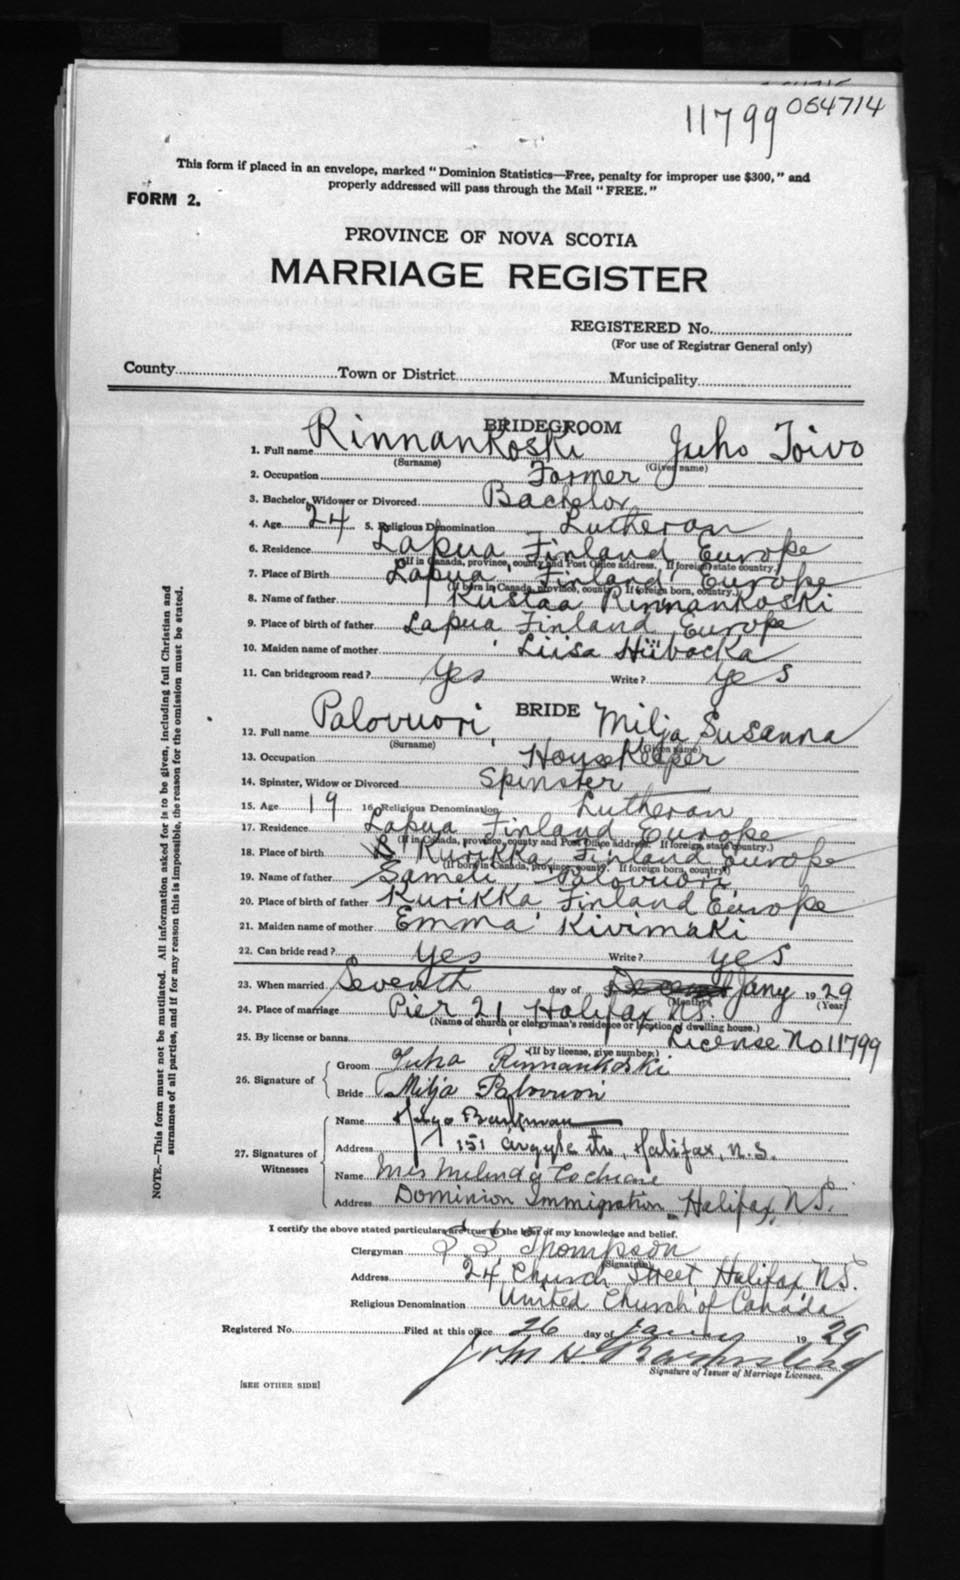 11799 064714
This form if placed in an envelope, marked "Dominion Statistics—Free, penalty for improper use $300," and
properly addressed will pass through the Mail "FREE."
FORM 2.
PROVINCE OF NOVA SCOTIA
MARRIAGE REGISTER
REGISTERED No.
(For use of Registrar General only)
County Town or District Municipality
BRIDEGROOM
1. Full name Rinnankoski Juho Toivo
(Surname) (Given name)
2. Occupation Farmer
3. Bachelor, Widower or Divorced Bachelor
4. Age 24 5. Religious Denomination Lutheran
6. Residence Lapua Finland Europe
(If in Canada, province, county and Post Office address. If foreign, state country.)
7. Place of Birth Lapua, Finland Europe
(If born in Canada, province, county. If foreign born, country.)
8. Name of father Kustaa Rinnankoski
9. Place of birth of father Lapua Finland Europe
10. Maiden name of mother Liisa
11. Can bridegroom read? Yes Write? Yes
BRIDE
12. Full name Palovuori, Milja Susanna
(Surname) (Given name)
13. Occupation HouseKeeper
14. Spinster, Widow or Divorced Spinster
15. Age 19 16. Religious Denomination Lutheran
17. Residence Lapua Finland Europe
(If in Canada, province, county and Post Office address. If foreign, state country.)
18. Place of birth Kurikka Finland Europe
(If born in Canada, province, county. If foreign born, country.)
19. Name of father Sameli Palovuori
20. Place of birth of father Kurikka Finland Europe
21. Maiden name of mother Emma Kivimaki
22. Can bride read? Yes Write? Yes
23. When married Seventh day of Jany 1929
(Month) (Year)
24. Place of marriage Pier 21, Halifax N.S.
(Name of church or clergyman's residence or location of dwelling house.)
25. By license or banns License No 11799
(If by license, give number.)
26. Signature of Groom Juho Rinnankoski
Bride Milja Palovuori
27. Signatures of Witnesses
Name
Address 151 Argyle St., Halifax, N.S.
Name Mrs Melinda Cochrane
Address Dominion Immigration, Halifax, N.S.
I certify the above stated particulars are true to the best of my knowledge and belief.
Clergyman Thompson
(Signature)
Address 24 Church Street, Halifax N.S.
Religious Denomination United Church of Canada
Registered No. Filed at this office 26 day of January 1929
John H. Barnstead
Signature of Issuer of Marriage Licenses.
[SEE OTHER SIDE]
NOTE.—This form must not be mutilated. All information asked for is to be given, including full Christian and
surnames of all parties, and if for any reason this is impossible, the reason for the omission must be stated.